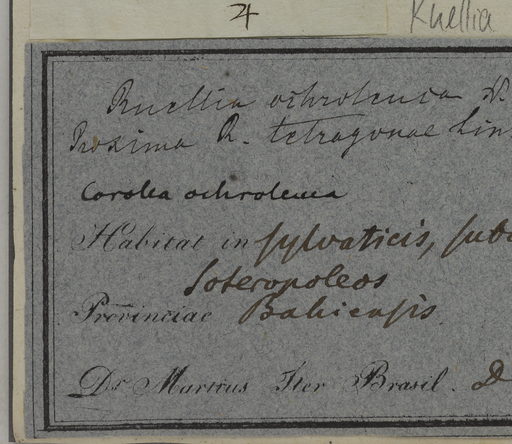 ♃ Ruellia
Ruellia ochroleuca
Proxima R. tetragonae Lin
Corolla ochroleuca
Habitat in sylvaticis,
Soteropoleos
Provinciae Bahiensis.
Dr Martius Iter Brasil. D